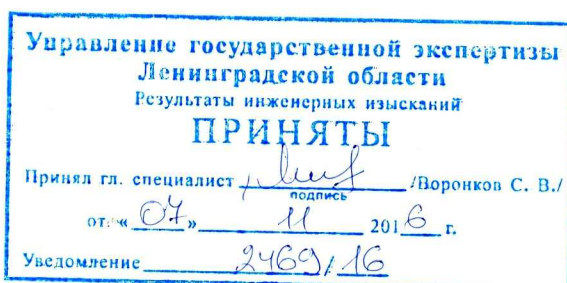 Управление государственной экспертизы
Ленинградской области
Результаты инженерных изысканий
ПРИНЯТЫ
Принял гл. специалист /Воронков С. В./
подпись
от: «07» 11 2016 г.
Уведомление 2469/16